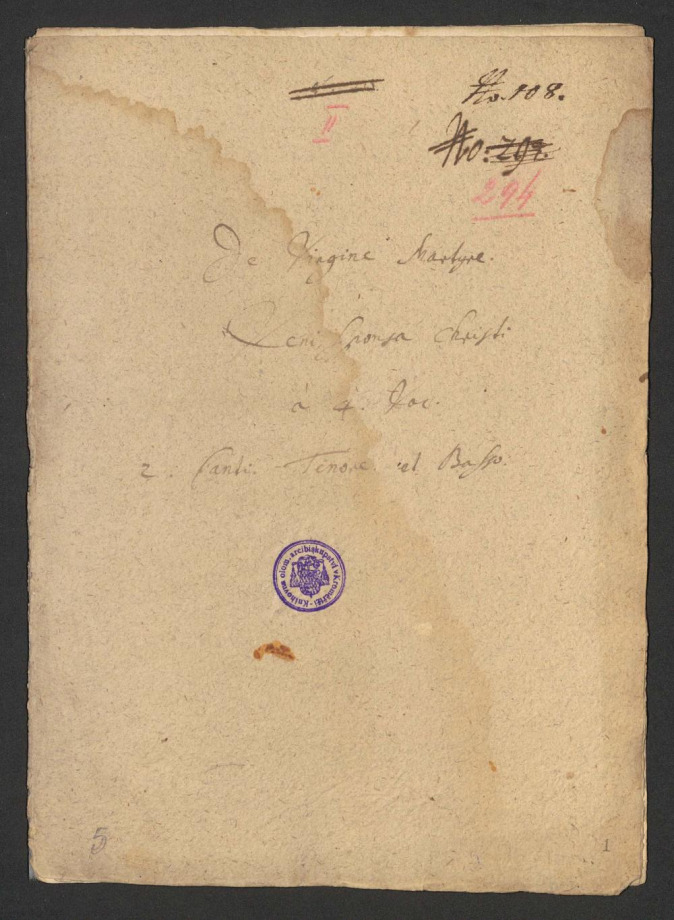 No. 108.
II
No: 291.
294
De Virgine Martyre.
Veni Sponsa Christi
à 4. Voc.
2. Canti. Tenore et Basso.
Knihovna olom. arcibiskupství v Kroměříži
5
1